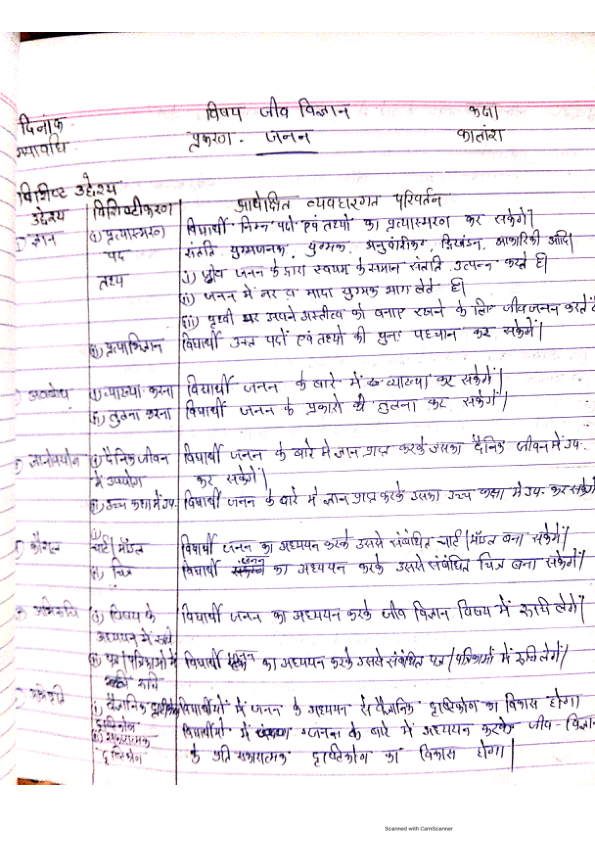 दिनांक विषय जीव विज्ञान कक्षा
समयावधि प्रकरण - जनन कालांश
विशिष्ट उद्देश्य
उद्देश्य विशिष्टीकरण आपेक्षित व्यवहारगत परिवर्तन
ज्ञान (i) प्रत्यास्मरण विद्यार्थी निम्न पदों एवं तथ्यों का प्रत्यास्मरण कर सकेंगे।
पद संतति, युग्मजनक, युग्मक, अनुवांशिक, द्विखंडन, आकारिकी आदि।
तथ्य i) जीव जनन के द्वारा स्वयम के समान संतति उत्पन्न करते है।
(ii) जनन में नर व मादा युग्मक भाग लेते है।
(iii) पृथ्वी पर अपने अस्तीत्व को बनाए रखने के लिए जीव जनन करते है
(ii) प्रत्याभिज्ञान विद्यार्थी उक्त पदों एवं तथ्यों की पुनः पहचान कर सकेंगे।
अवबोध (i) व्याख्या करना विद्यार्थी जनन के बारे में व्याख्या कर सकेंगे।
(ii) तुलना करना विद्यार्थी जनन के प्रकारो की तुलना कर सकेंगे।
ज्ञानोपयोग (i) दैनिक जीवन विद्यार्थी जनन के बारे मे ज्ञान प्राप्त करके उसका दैनिक जीवन में उप.
में उपयोग कर सकेंगे।
(ii) उच्च कक्षा में उप. विद्यार्थी जनन के बारे में ज्ञान प्राप्त करके उसका उच्च कक्षा मे उप. कर सकेंगे
कौशल (i) चार्ट/मॉडल विद्यार्थी जनन का अध्ययन करके उससे संबंधित चार्ट/मॉडल बना सकेंगे।
(ii) चित्र विद्यार्थी जनन का अध्ययन करके उससे संबंधित चित्र बना सकेंगे।
अभिरुचि (i) विषय के विद्यार्थी जनन का अध्ययन करके जीव विज्ञान विषय में रूचि लेंगे।
अध्ययन में रूचि
(ii) पत्र/पत्रिकाओं में विद्यार्थी जनन का अध्ययन करके उससे संबंधित पत्र/पत्रिकाओं में रूचि लेंगे।
रूचि
(i) वैज्ञानिक विद्यार्थीयों में जनन के अध्ययन से वैज्ञानिक दृष्टिकोण का विकास होगा
दृष्टिकोण
(ii) सकारात्मक विद्यार्थीयो में जनन के बारे में अध्ययन करके जीव-विज्ञान
दृष्टिकोण के प्रति सकारात्मक दृष्टिकोण का विकास होगा।
Scanned with CamScanner